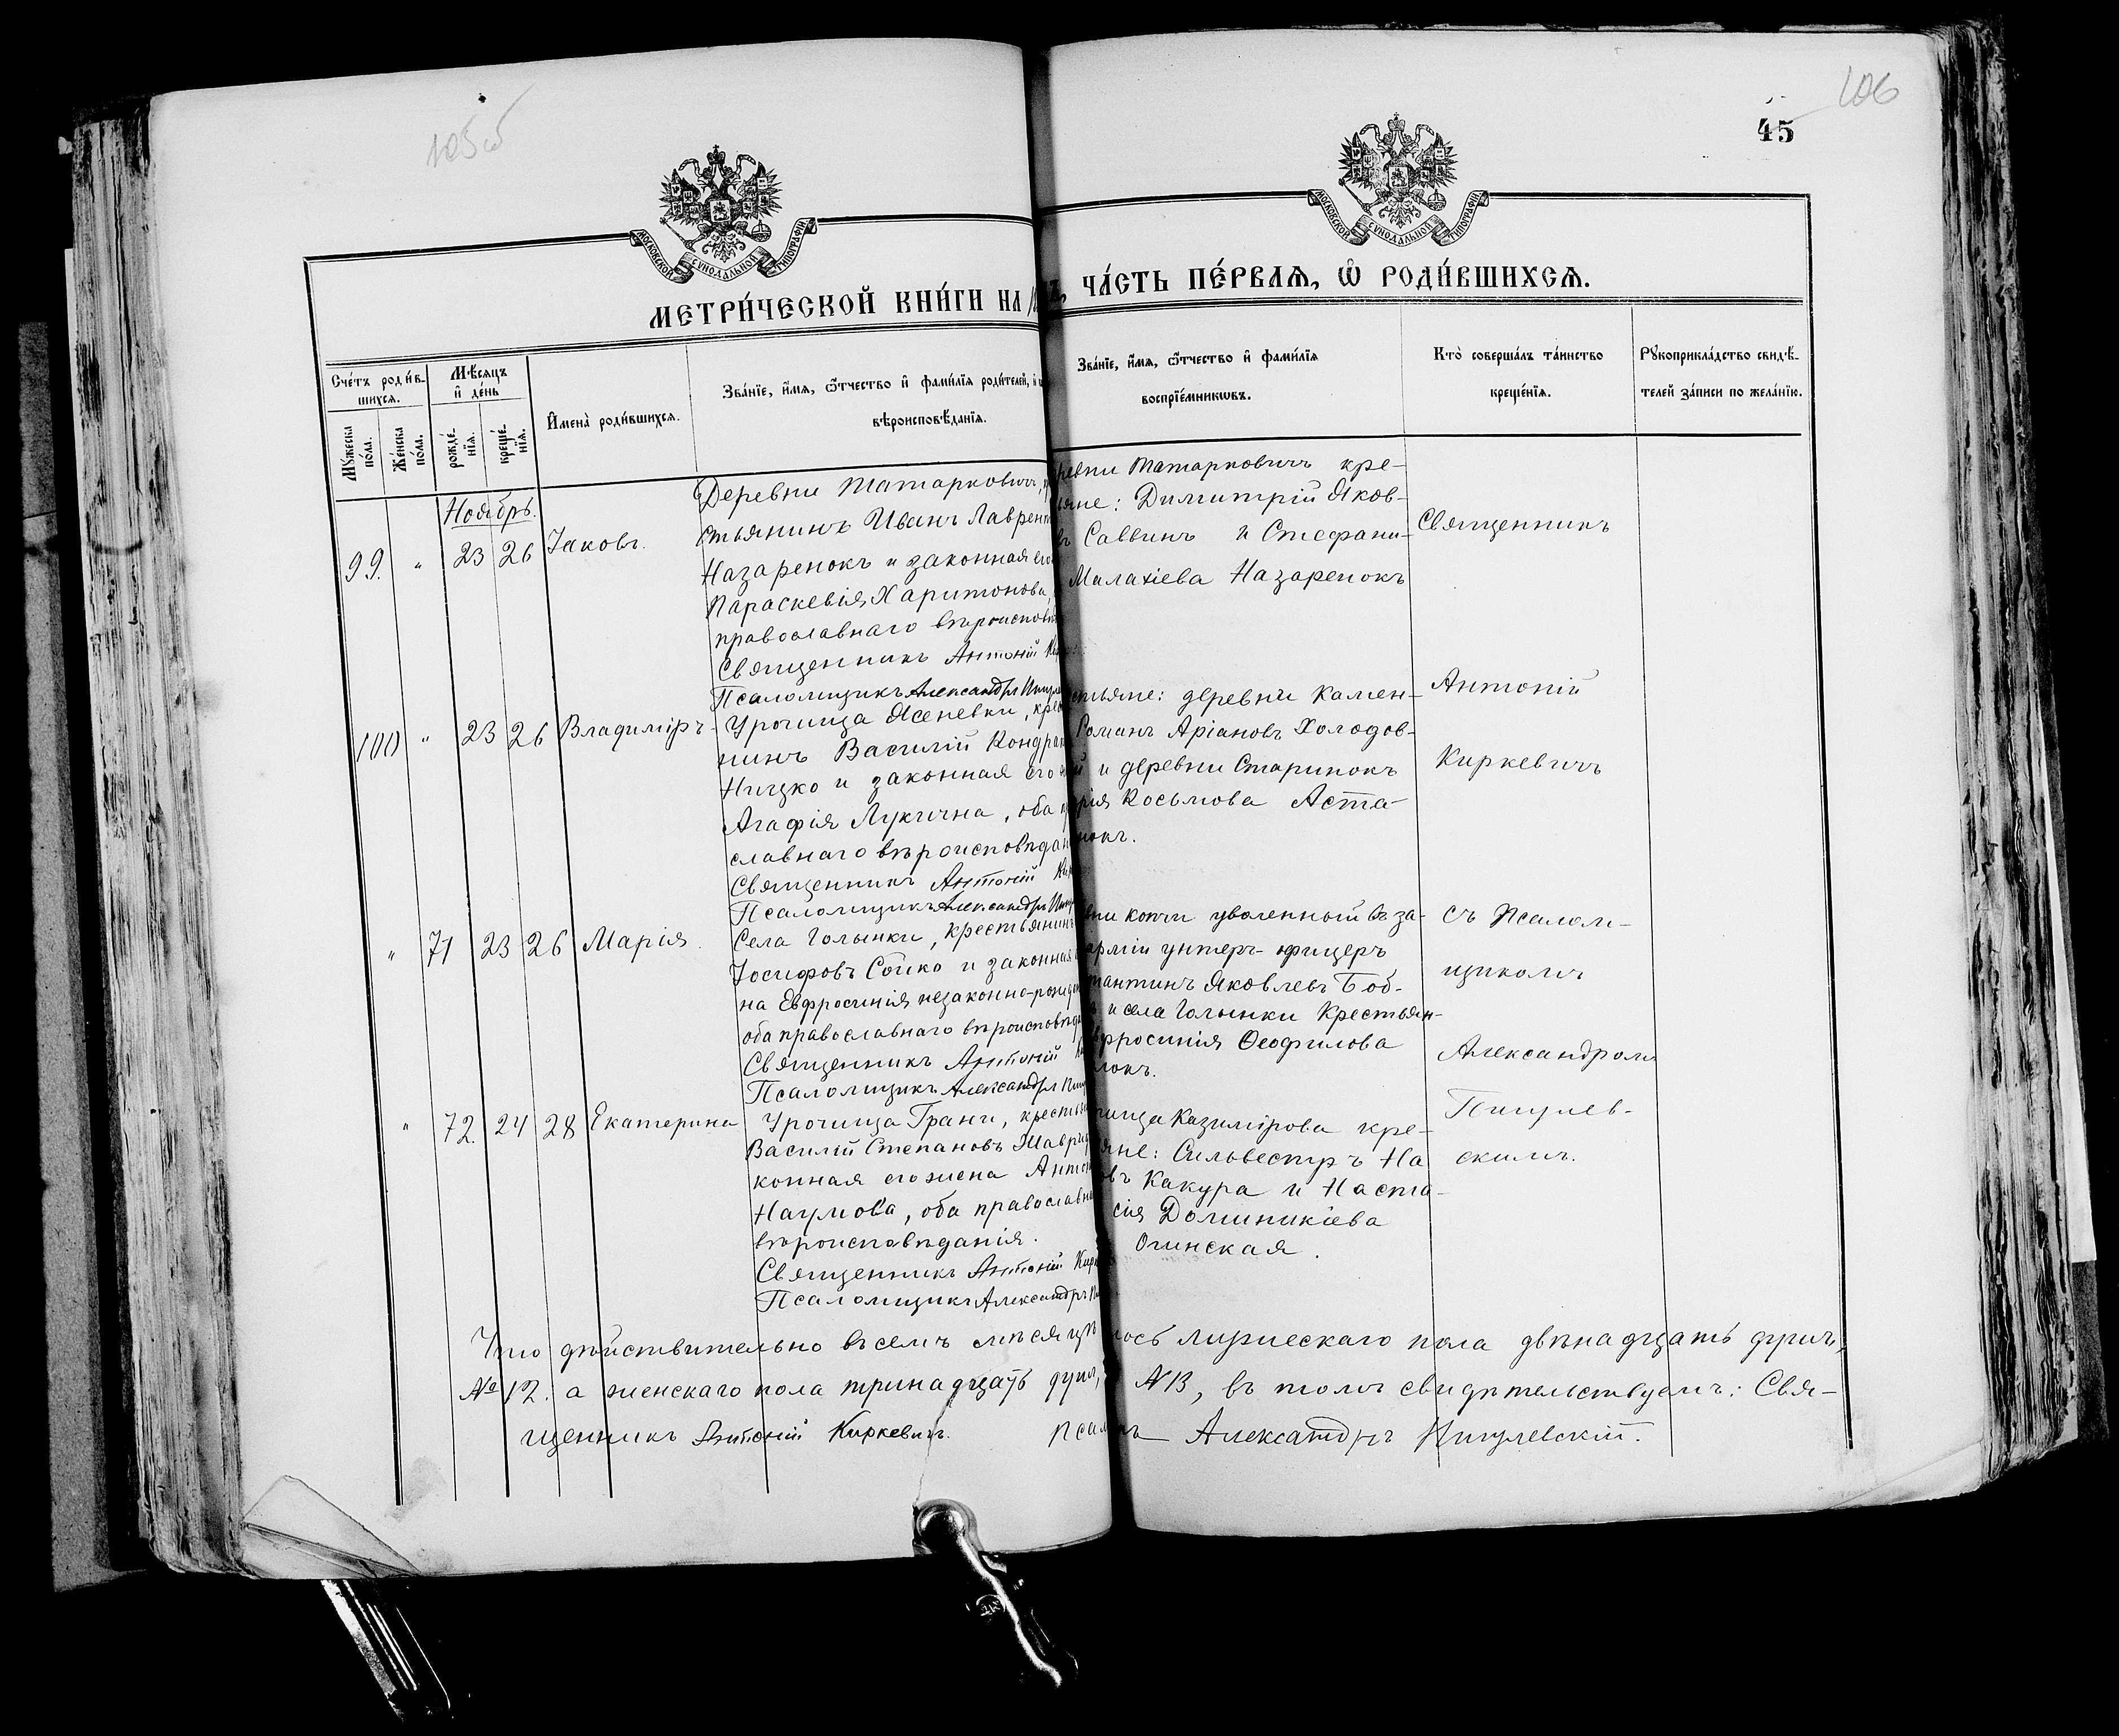 105об
106
45
МОСКОВСКОЙ СѴНОДАЛЬНОЙ ТИПОГРАФІИ
МОСКОВСКОЙ СѴНОДАЛЬНОЙ ТИПОГРАФІИ
МЕТРИ́ЧЕСКОЙ КНИ́ГИ НА
ЧА́СТЬ ПЕ́РВАѦ, Ѽ РОДИ́ВШИХСѦ.
Сче́тъ роди́в-
шихсѧ.
Мꙋжеска по́ла.
Же́нска по́ла.
Мѣ́сѧцъ
и҆ де́нь
рожде́-
нїѧ.
креще́-
нїѧ.
И҆мена̀ роди́вшихсѧ.
Зва́нїе, и҆́мѧ, ѻ҆́тчество и҆ фами́лїѧ роди́телей,
вѣроисповѣ́данїѧ.
Зва́нїе, и҆́мѧ, ѻ҆́тчество и҆ фами́лїѧ
воспрїе́мникѡвъ.
Кто̀ соверша́лъ та́инство
креще́нїѧ.
Рꙋкоприкла́дство свидѣ́-
телей за́писи по жела́нїю.
Ноябрь.
99. " 23 26 Іаковъ.
Деревни Татарковичъ,
стьянинъ Иванъ Лаврент
Назаренокъ и законная его
Параскевія Харитонова,
православнаго вѣроисповѣ
Священникъ Антоній
Псаломщикъ Александръ
ревни Татарковичъ кре-
яне: Димитрій Яков-
въ Саввинъ и Стефани-
Малахіева Назаренокъ
100 " 23 26 Владиміръ
Урочища Ясеневки, кре
нинъ Василій Кондра
Ницко и законная его
Агафія Лукична, оба
славнаго вѣроисповѣдан
Священникъ Антоній
Псаломщикъ Александръ
стьяне: деревни Камен-
Романъ Аріановъ Холодов-
й и деревни Старинокъ
рія Косьмова Аста-
нокъ.
" 71 23 26 Марія.
Села Голынки, крестьянинъ
Іосифовъ Сойко и законная
на Евфросинія незаконно-рожд
оба православнаго вѣроисповѣд
Священникъ Антоній
Псаломщикъ Александръ
вни уволенный въ за-
арміи унтеръ-офицеръ
тантинъ Яковлевъ Боб-
и села Голынки крестьян-
вфросинія Ѳеофилова
локъ.
" 72. 24 28 Екатерина
Урочища Грани, кресть
Василій Степановъ
конная его жена Анто
Наумова, оба православн
вѣроисповѣданія.
Священникъ Антоній Кир
Псаломщикъ Александръ
чища Казимірова кре-
яне: Сильвестръ На
овъ Какура и Наста-
сія Доминикіева
Огинская.
Священникъ
Антоній
Киркевичъ
съ Псалом-
щикомъ
Александромъ
Пигулев-
скимъ.
Что дѣйствительно въ семъ мѣсяцѣ лось мужескаго пола двѣнадцать душъ,
№ 12. а женскаго пола тринадцать душъ, № 13, въ томъ свидѣтельствуемъ: Свя-
щенникъ Антоній Киркевичъ. Александръ Пигулевскій.